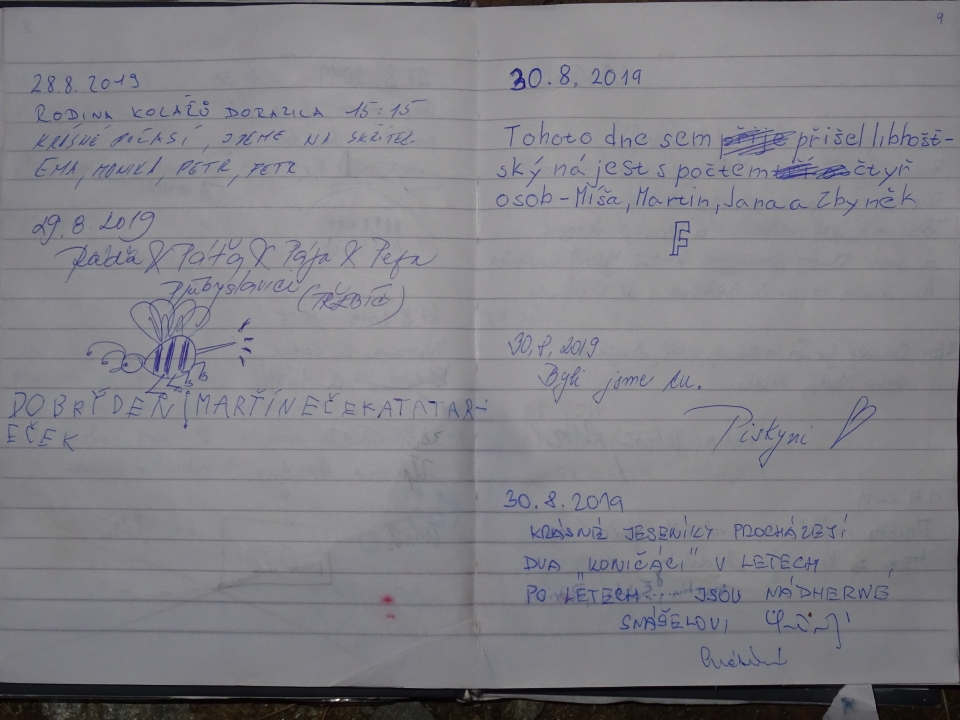 28.8.2019
RODINA KOLÁŘŮ DORAZILA 15:15
KRÁSNÉ POČASÍ, JDEME NA SKŘÍTEK
EMA, MONIKA, PETR, PETR
29.8.2019
Ráďa & Páťa & Pája & Pepa
Přibyslavici
(TŘEBÍČ)
DOBRÝDEŇ MARŤÍNEČEKATATAR-
EČEK
9
30.8.2019
Tohoto dne sem přišel libhošť-
ský nájest s počtem čtyř
osob - Míša, Martin, Jana a Zbyněk
F
30.8.2019
Byli jsme tu.
Piskyni
30.8.2019
KRÁSNÉ JESENÍKY PROCHÁZEJÍ
DVA „KONIČÁCI" V LETECH
PO LETECH... JSOU NÁDHERNÉ
SNÁŠELOVI